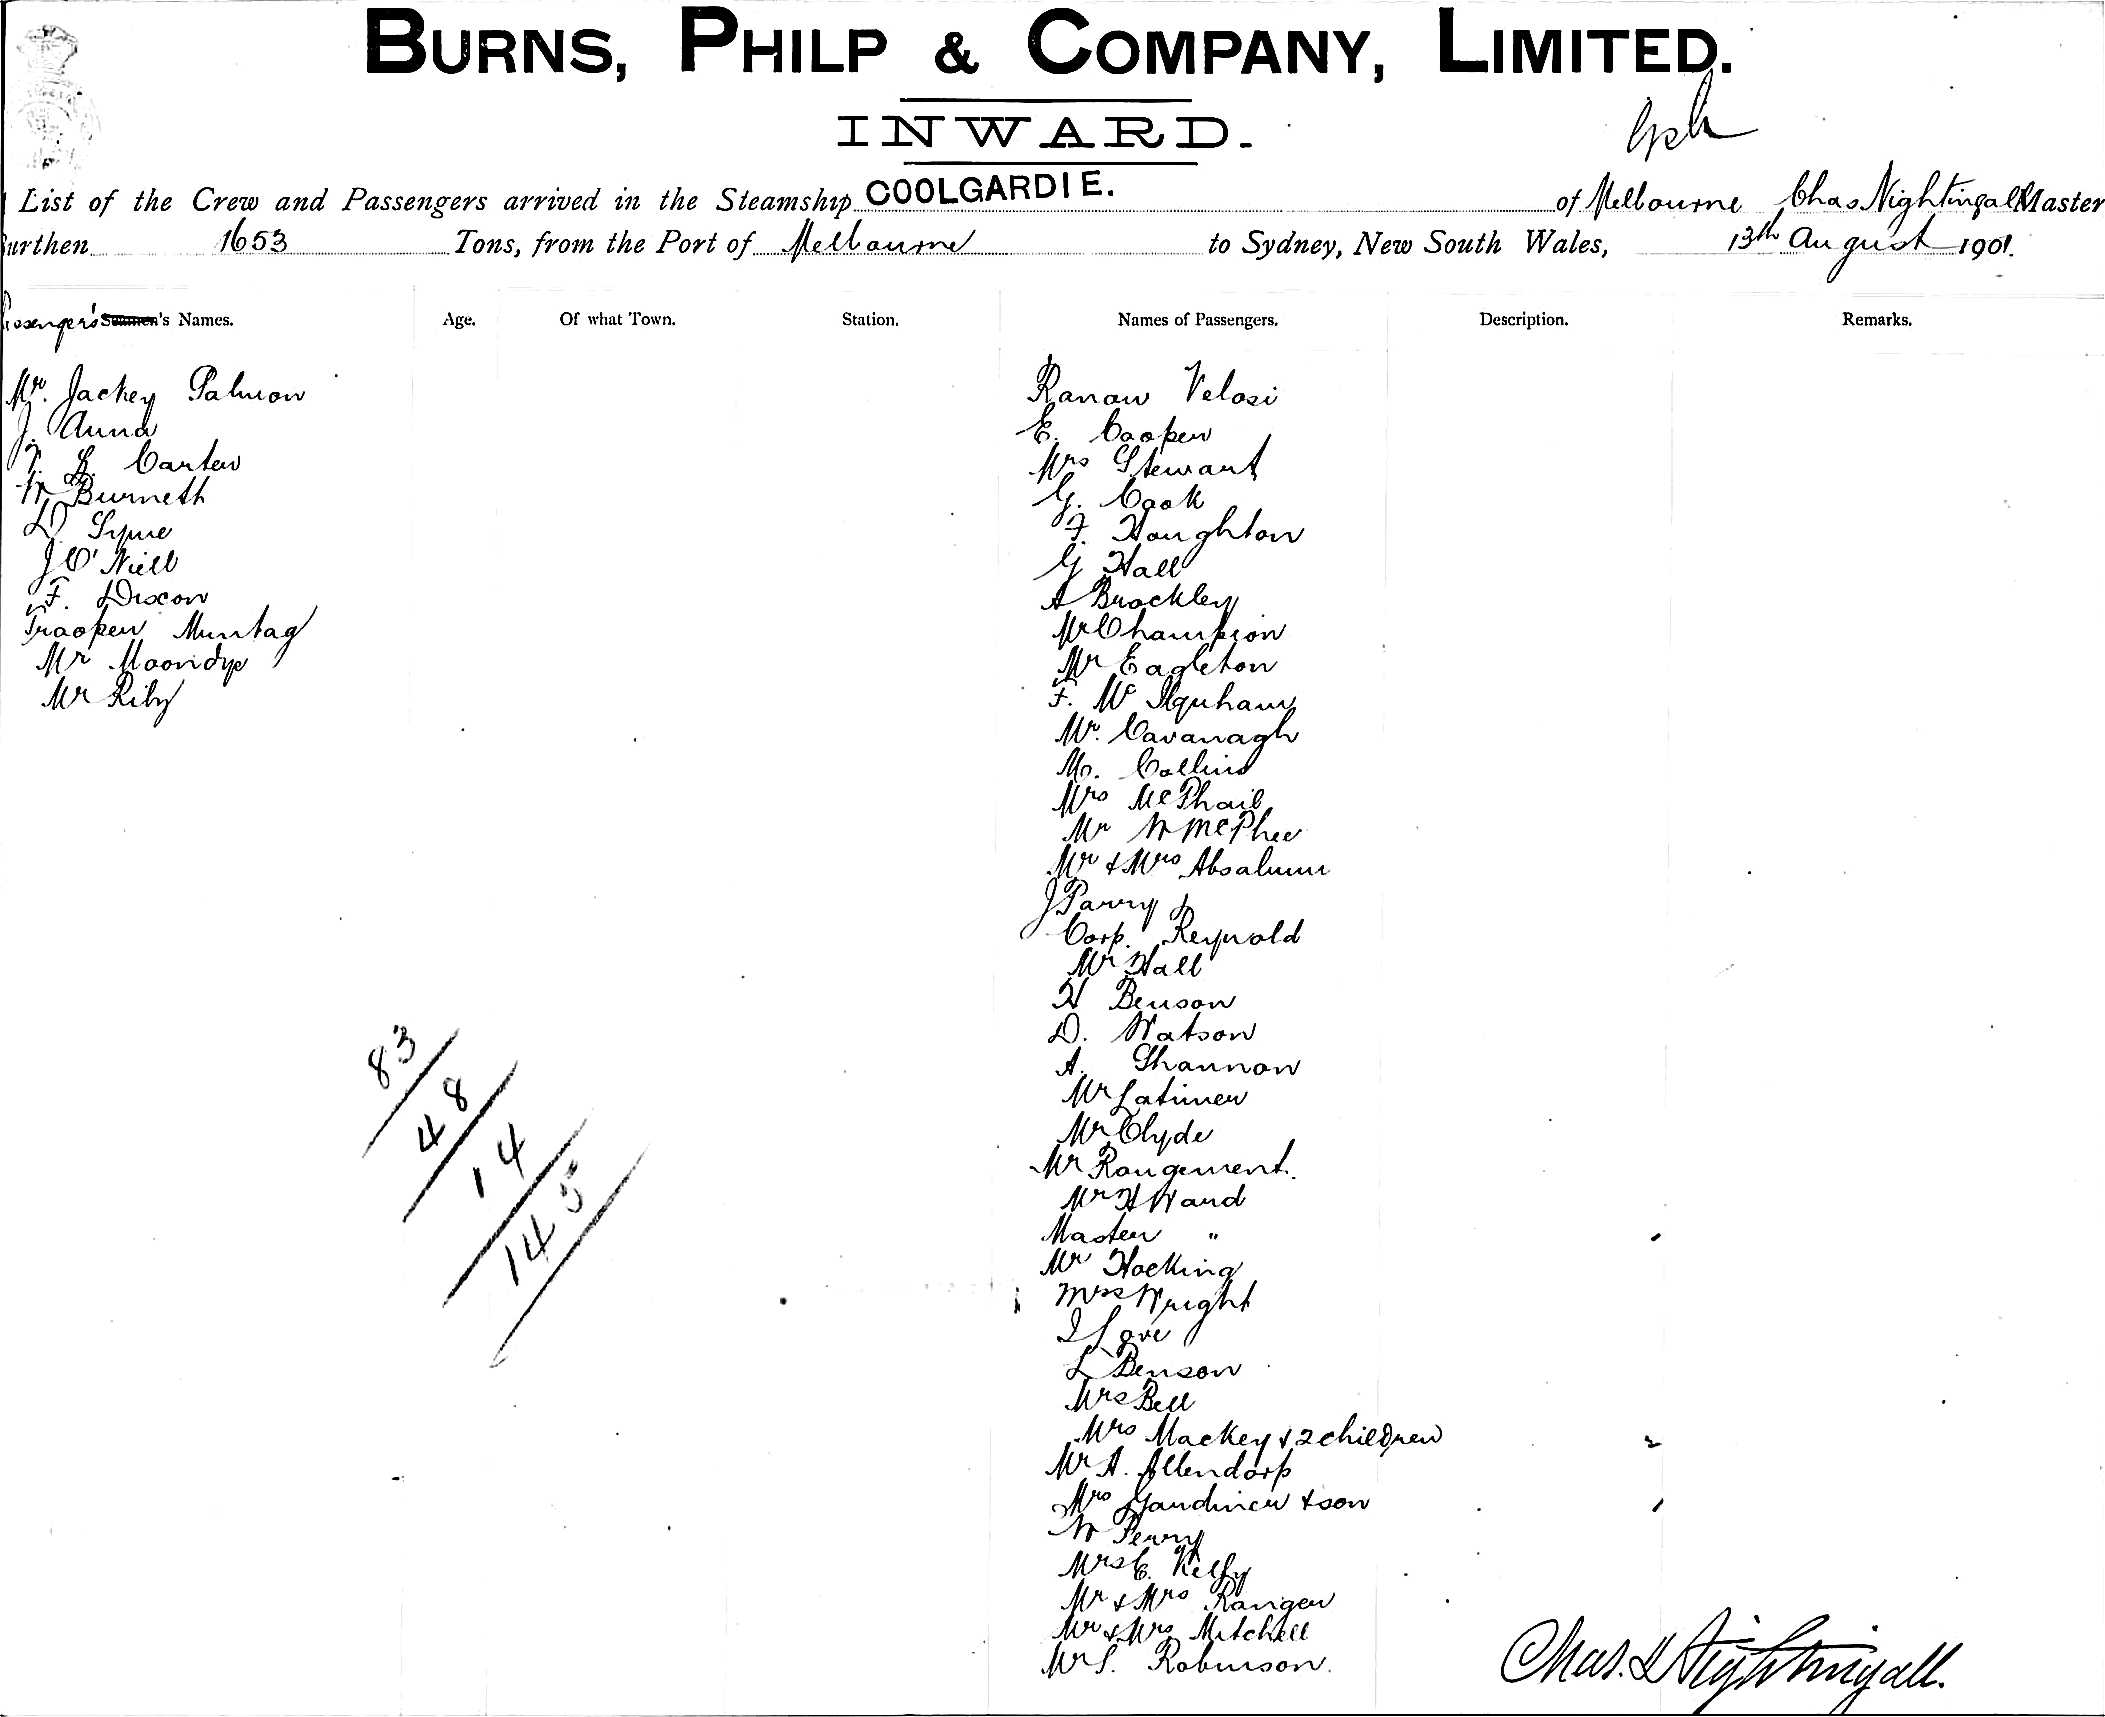 BURNS, PHILP & COMPANY, LIMITED.
INWARD.
List of the Crew and Passengers arrived in the Steamship COOLGARDIE. of Melbourne Chas Nightingall Master
Burthen 1653 Tons, from the Port of Melbourne to Sydney, New South Wales, 13th August 1901.
Passenger's Seamen's Names. Age. Of what Town. Station. Names of Passengers. Description. Remarks.
Mr. Jackey Salmon
J. Anna
L. Carter
W Burneth
D Syme
J O'Niell
F. Dixon
Trooper Muntag
Mr Moondye
Mr Riby
Ranaw Velosi
E. Cooper
Mrs Stewart
G. Cook
F. Houghton
G Hall
A Brockley
Mr Champion
Mr Eagleton
F. Mc
Mr. Cavanagh
Mr. Collins
Mrs McPhail
Mr W McPhee
Mr & Mrs Absalum
J Parry
Corp. Reynold
Mr Hall
H Benson
D. Watson
A. Shannon
Mr Latimer
Mr Clyde
Mr Rougement.
Mr H Ward
Master "
Mr Hocking
Mrs Wright
I Love
L Benson
Mrs Bell
Mrs Mackey & 2 children 2
Mr A. Allendorp
Mrs Gardiner & son 1
W Perry
Mrs C. Kelly
Mr & Mrs Ranger
Mr & Mrs Mitchell
Mr S. Robinson.
83
48
14
145
Chas. Nightingall.